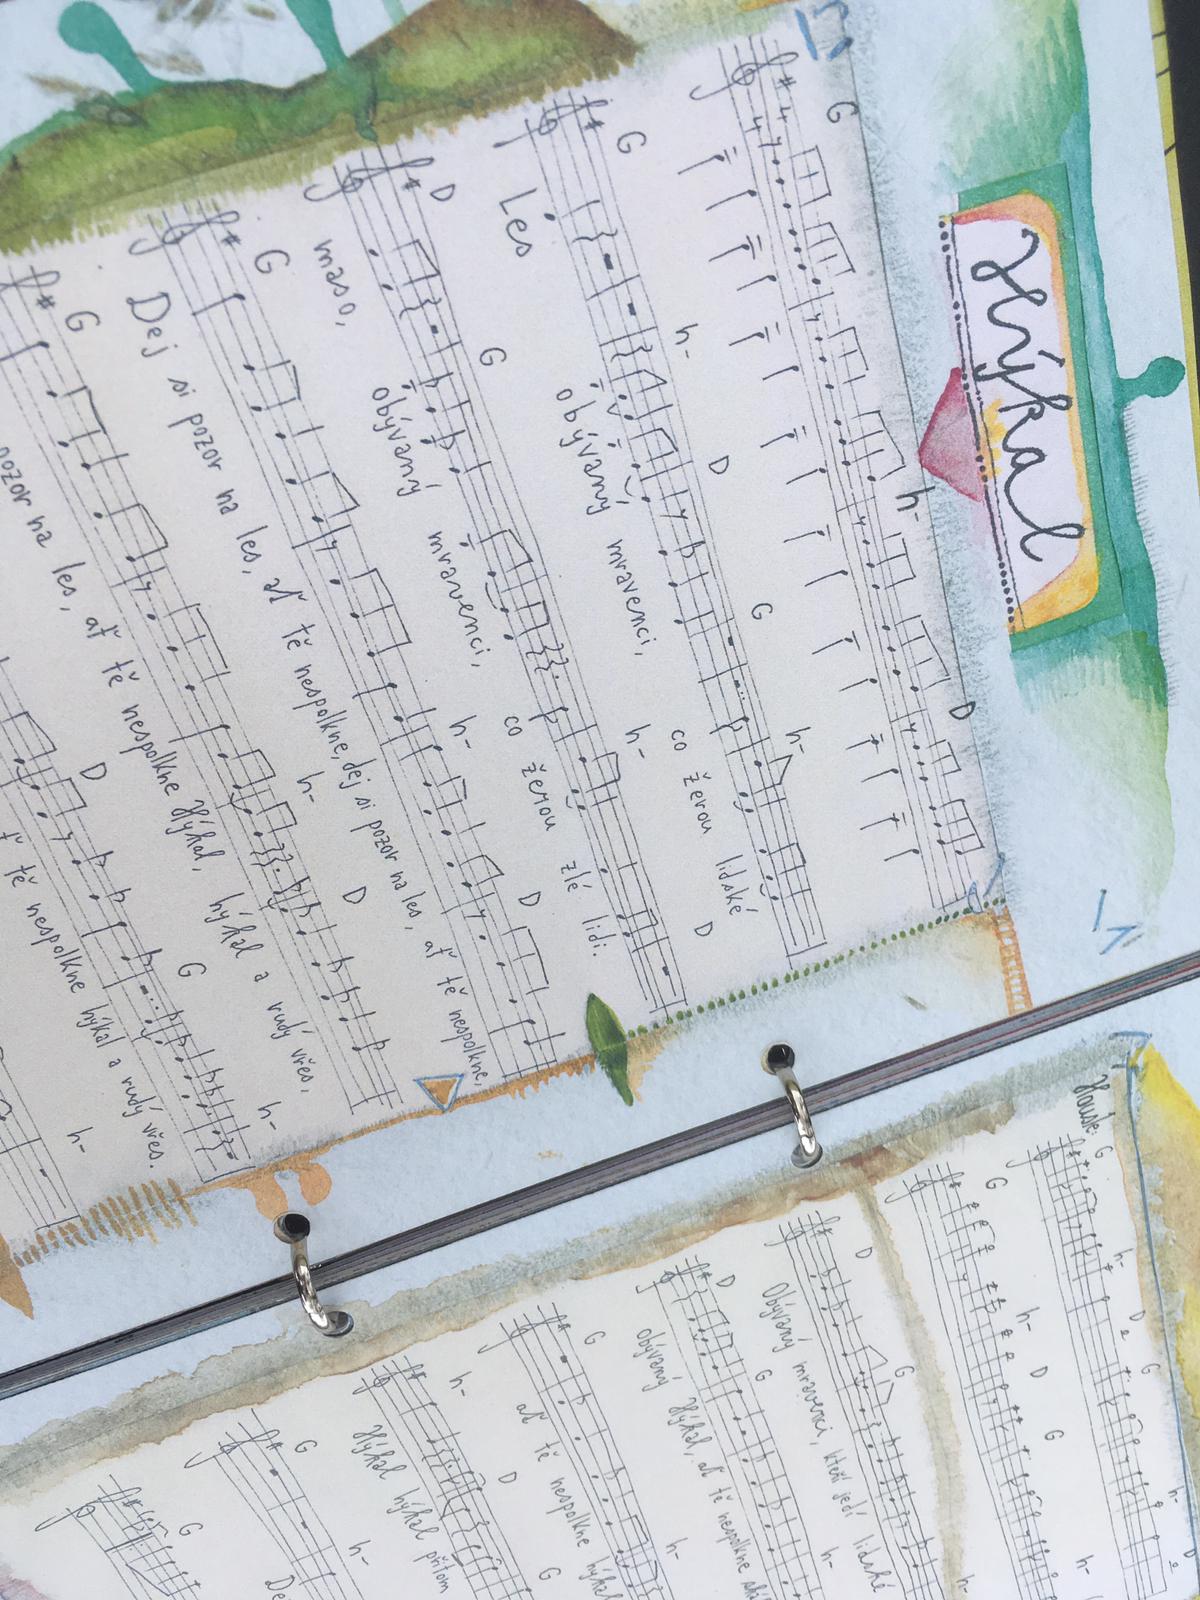 Hýkal
G h- D
G h- D G h-
Les obývaný mravenci, co žerou lidské
D G h- D
maso, obývaný mravenci, co žerou zlé lidi.
G h- D
Dej si pozor na les, ať tě nespolkne, dej si pozor na les, ať tě nespolkne,
G h- D h-
pozor na les, ať tě nespolkne Hýkal, hýkal a rudý vřes,
D G h-
tě nespolkne hýkal a rudý vřes.
Housle:
G h- D G h- D
G h- D G h-
D G h-
Obývaný mravenci, kteří jedí lidské
D G h-
obývaný Hýkal, ať tě nespolkne
G h-
ať tě nespolkne hýkal
h- D G
Hýkal hýkal přitom
G h-
G